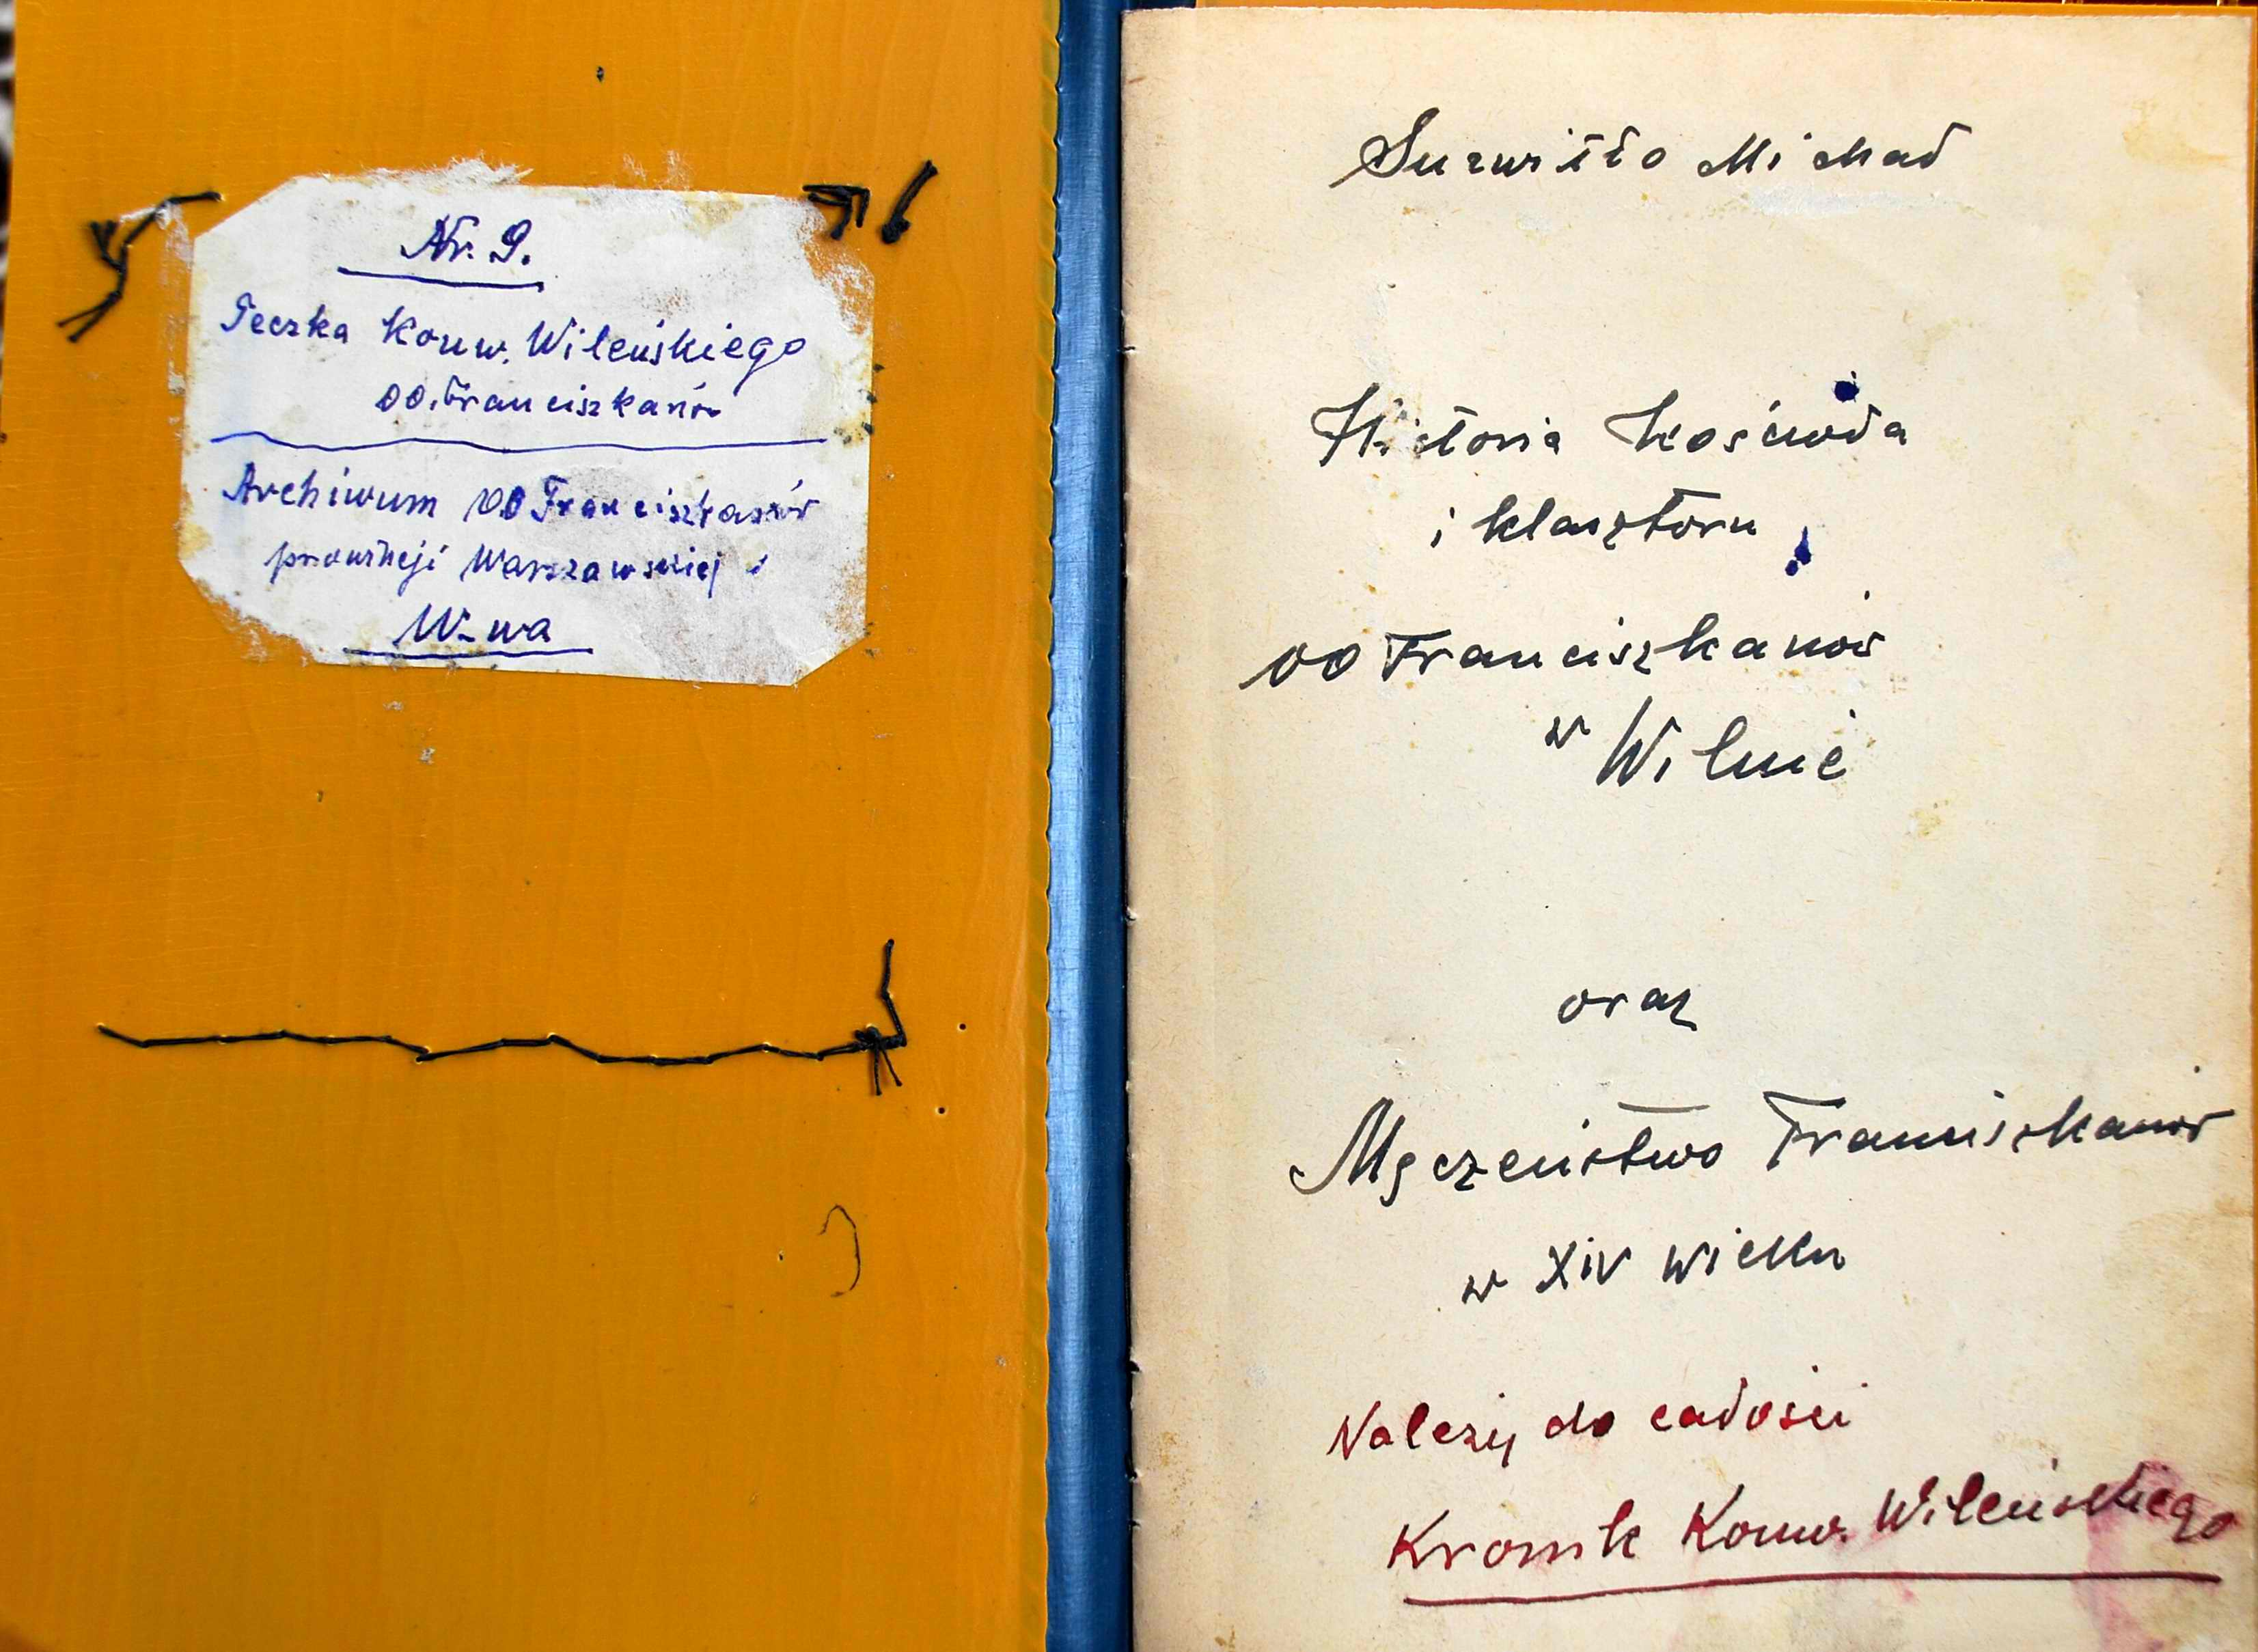 Nr. 9.
Teczka Konw. Wileńskiego
OO. Franciszkanów
Archiwum OO Franciszkanów
prowincji Warszawskiej
W-wa
Surwiłło Michał
Historia Kościoła
i klasztoru
OO Franciszkanów
w Wilnie
oraz
Męczeństwo Franciszkanów
w XIV wieku
Należy do całości
Kronik Konw. Wileńskiego